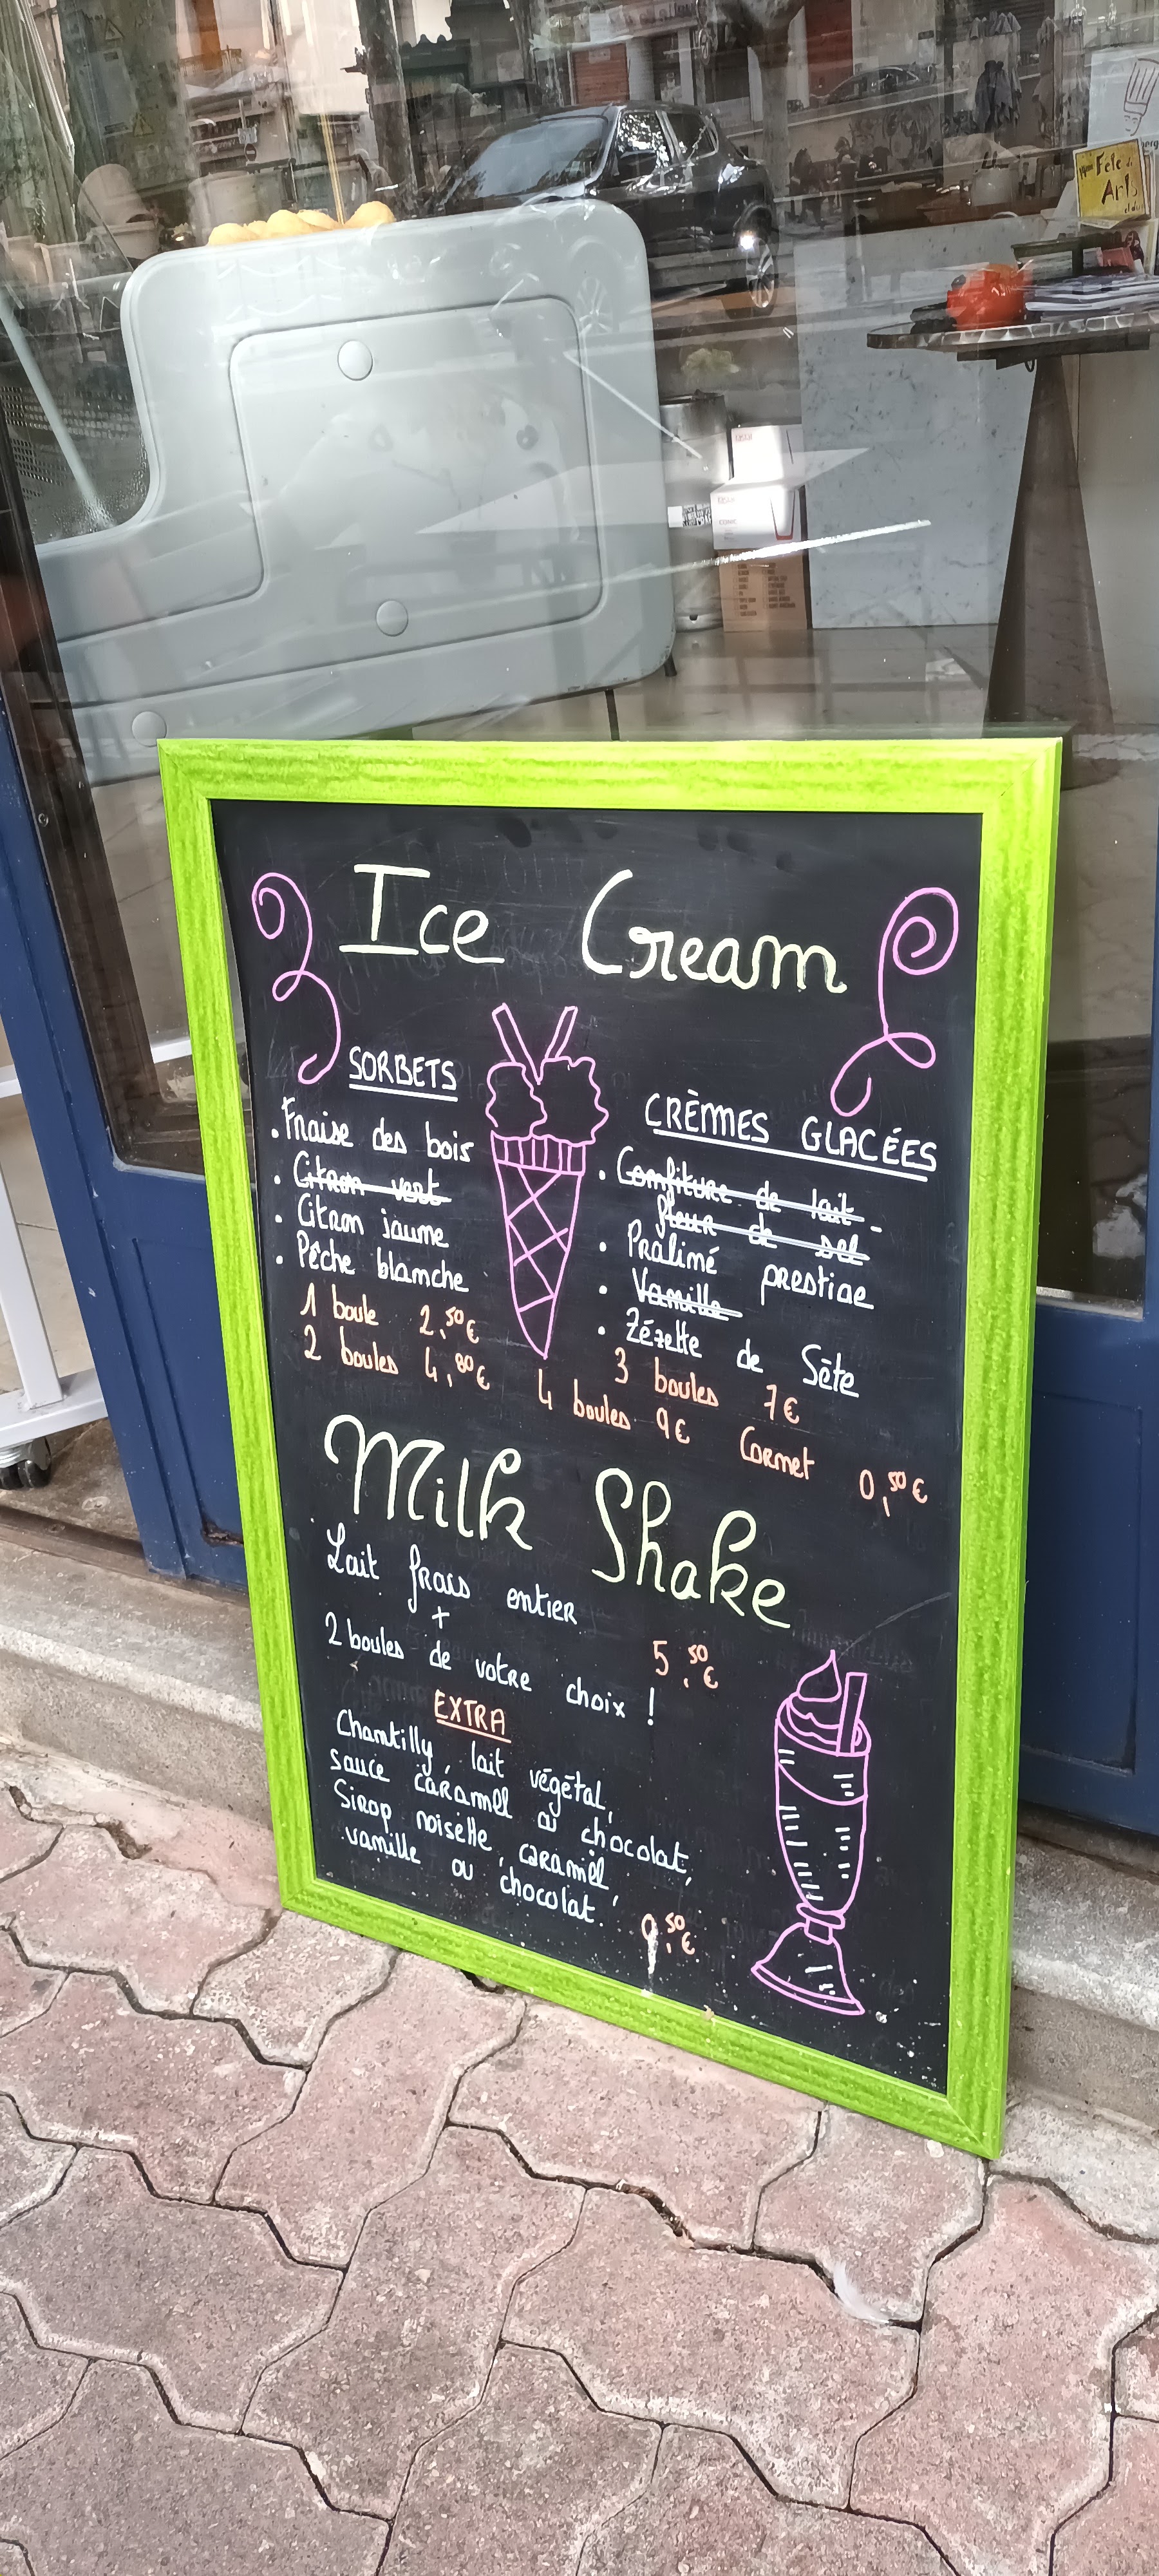 Fête
Arts
Ice Cream
SORBETS
. Fraise des bois
. Citron vert
. Citron jaune
. Pêche blanche
CRÈMES GLACÉES
. Confiture de lait -
fleur de sel
. Praliné prestige
. Vanille
. Zézette de Sète
1 boule 2,50€
2 boules 4,80€
3 boules 7€
4 boules 9€ Cornet 0,50€
Milk Shake
Lait frais entier
+
2 boules de votre choix !
5,50€
EXTRA
Chantilly, lait végétal,
sauce caramel ou chocolat,
Sirop noisette, caramel,
vanille ou chocolat.
0,50€